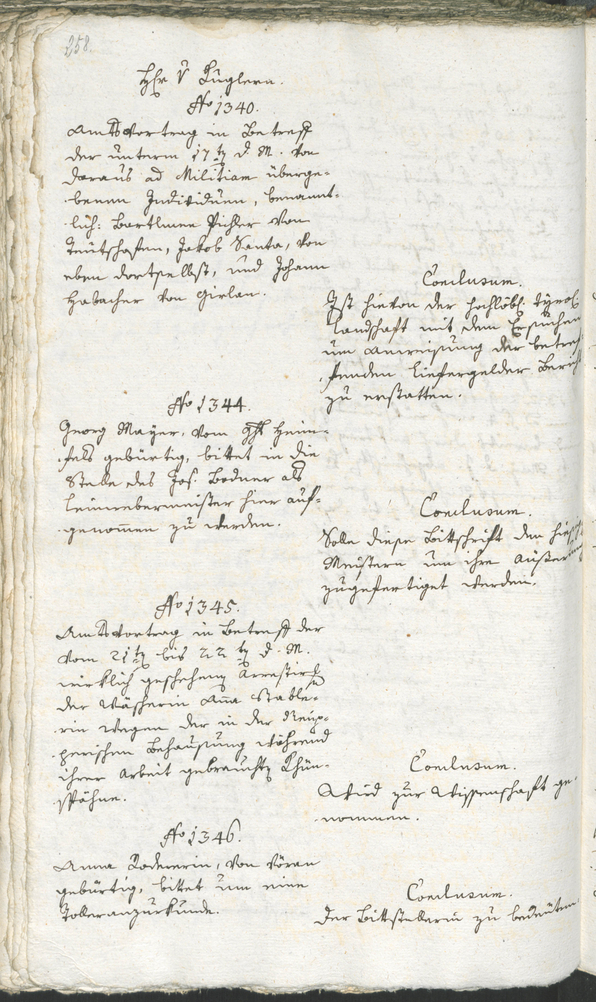 258.
Hr v Kuglern.
No 1340.
Amtsvortrag in Betreff
der unterm 17ten d. M. von
daraus ad Militiam überge-
benen Individuen, benannt-
lich: Bartlmee Pichler von
Teutschofen, Jakob Santa, von
eben dortselbst, und Johann
Habacher von Girlan.
Conclusum.
Ist hievon der hochlöbl. tyrol.
Landschaft mit dem Ersuchen
um Anweisung der betref-
fenden Liefergelder Bericht
zu erstatten.
No 1344.
Georg Mayer, vom Ght Heim-
fels gebürtig, bittet in die
Stelle des Jos. Bodner als
Leinwebermeister hier auf-
genommen zu werden.
Conclusum.
Solle diese Bittschrift den hiesigen
Meistern um ihre Äußerung
zugefertiget werden.
No 1345.
Amtsvortrag in Betreff der
vom 21ten bis 22ten d. M.
wirklich geschehenen Arrestirung
der Wäscherin Anna Stable-
rin wegen der in der
perischen Behausung während
ihrer Arbeit gebrauchten
spähne.
Conclusum.
Wird zur Wissenschaft ge-
nommen.
No 1346.
Anna Kodererin, von Vöran
gebürtig, bittet um eine
Tolleranzurkunde.
Conclusum.
Der Bittstellerin zu bedeuten